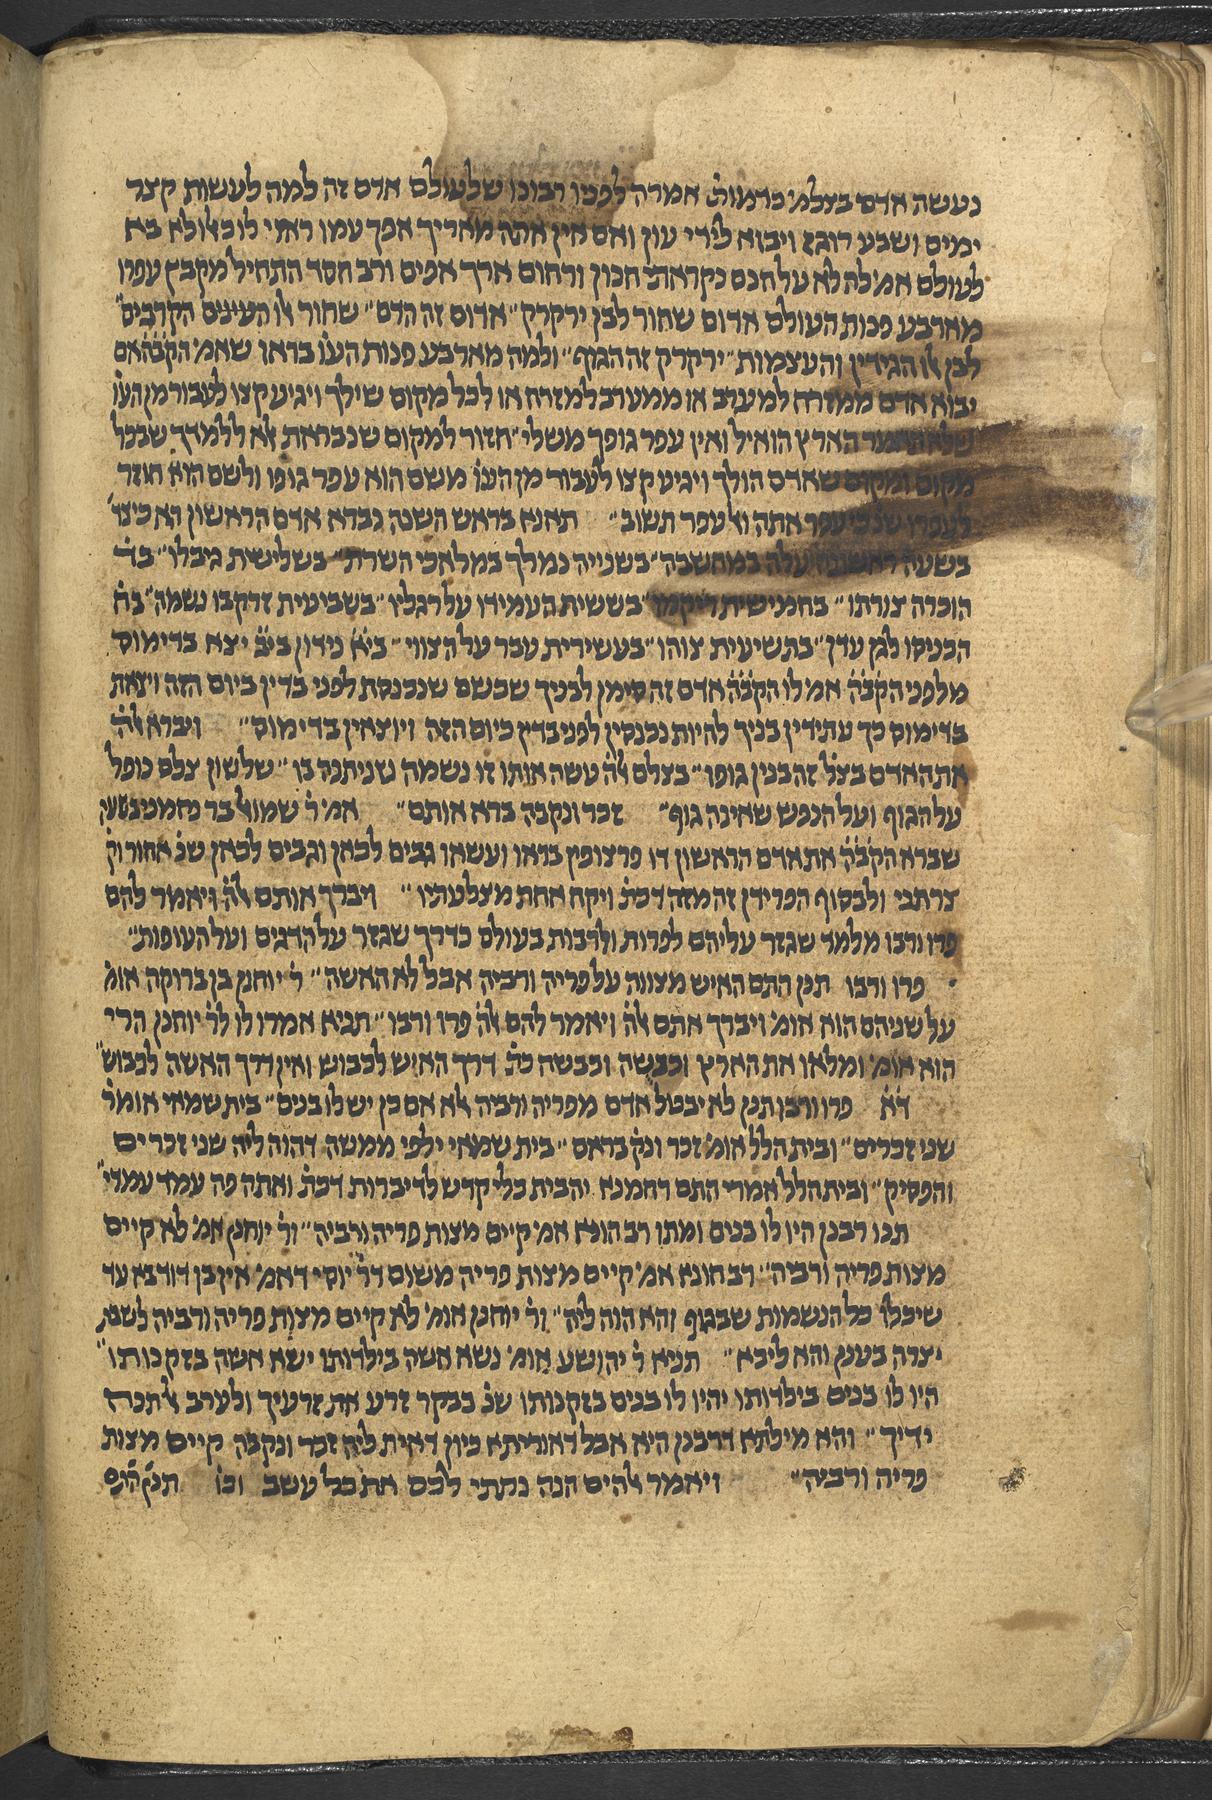 נעשה אדם בצלמ׳ כדמות׳ אמרה לפניו רבונו שלעולם אדם זה למה לעשות קצר
ימים ושבע רוגז ויבוא לידי עון ואם אין אתה מאריך אפך עמו ראוי לו כאלו לא בא
לעולם אמ׳ לה לא על חנם נקראתי חנון ורחום ארך אפים ורב חסד התחיל מקבץ עפרו
מארבע פנות העולם אדום שחור לבן ירקרק״ אדום זה הדם״ שחור אלו העינים הקרבים״
לבן אלו הגידין והעצמות״ ירקרק זה הגוף״ ולמה מארבע פנות העו׳ בראו שאמ׳ הקב״ה אם
יבוא אדם ממזרח למערב או ממערב למזרח או לכל מקום שילך ויגיע קצו לעבור מן העו׳
שלא תאמר הארץ הואיל ואין עפר גופך משלי״ חזור למקום שנבראת אלא ללמדך שבכל
מקום ומקום שאדם הולך ויגיע קצו לעבור מן העו׳ משם הוא עפר גופו ולשם הוא חוזר
לעפרו שנ׳ כי עפר אתה ואל עפר תשוב״ תאנא בראש השנה נברא אדם הראשון הא כיצד׳
בשעה ראשונה עלה במחשבה״ בשנייה נמלך במלאכי השרת״ בשלישית גיבלו״ בד׳
הוכרה צורתו״ בחמישית ריקמו״ בששית העמידו על רגליו״ בשביעית זרק בו נשמה״ בח׳
הכניסו לגן עדן״ בתשיעית צוהו״ בעשירית עבר על הצווי״ בי״א נידון בי״ב יצא בדימוס
מלפני הקב״ה אמ׳ לו הקב״ה אדם זה סימן לבניך שכשם שנכנסת לפני בדין ביום הזה ויצאת
בדימוס כך עתידין בניך להיות נכנסין לפני בדין ביום הזה ויוצאין בדימוס״ ויברא אלה׳
את האדם בצל׳ זה בנין גופו״ בצלם אלה׳ עשה אותו זו נשמה שניתנה בו״ שלשון צלם נופל
על הגוף ועל הנפש שאינה גוף״ זכר ונקבה ברא אותם״ אמ׳ ר׳ שמואל בר נחמני בשעה
שברא הקב״ה את אדם הראשון דו פרצופין בראו ועשאו גבים לכאן וגבים לכאן שנ׳ אחור וק׳
צרתני ולבסוף הפרידן זה מזה דכת׳ ויקח אחת מצלעותיו״ ויברך אותם אלה׳ ויאמר להם
פרו ורבו מלמד שגזר עליהם לפרות ולרבות בעולם כדרך שגזר על הדגים ועל העופות״
פרו ורבו תנן התם האיש מצווה על פריה ורביה אבל לא האשה״ ר׳ יוחנן בן ברוקה אומ׳
על שניהם הוא אומ׳ ויברך אתם אלה׳ ויאמר להם אלה׳ פרו ורבו״ תניא אמרו לו לר׳ יוחנן הרי
הוא אומ׳ ומלאו את הארץ וכבשה וכבשה כת׳ דרך האיש לכבוש ואין דרך האשה לכבוש״
ד״א פרו ורבו תנן לא יבטל אדם מפריה ורביה אלא אם כן יש לו בנים״ בית שמאי אומר׳
שני זכרים״ ובית הלל אומ׳ זכר ונק׳ בראם״ בית שמאי ילפי ממשה דהוה ליה שני זכרים
והפסיק״ ובית הלל אמרי התם רחמנא יהבית כלי קדש לדיברות דכת׳ ואתה פה עמד עמדי״
תנו רבנן היו לו בנים ומתו רב הונא אמ׳ קיים מצות פריה ורביה״ ור׳ יוחנן אמ׳ לא קיים
מצות פריה ורביה״ רב הונא אמ׳ קיים מצות פריה משום דר׳ יוסי דאמ׳ אין בן דוד בא עד
שיכלו כל הנשמות שבגוף והא הוה ליה״ ור׳ יוחנן אומ׳ לא קיים מצות פריה ורביה לשבת
יצרה בענן והא ליכא״ תניא ר׳ יהושע אומ׳ נשא אשה בילדותו ישא אשה בזקנותו״
היו לו בנים בילדותו יהיו לו בנים בזקנותו שנ׳ בבקר זרע את זרעיך ולערב אל תנח
ידיך״ והא מילתא דרבנן היא אבל דאוריתא כיון דאית ליה זכר ונקבה קיים מצות
פריה ורביה״ ויאמר אלהים הנה נתתי לכם את כל עשב וכו׳ תנן התם